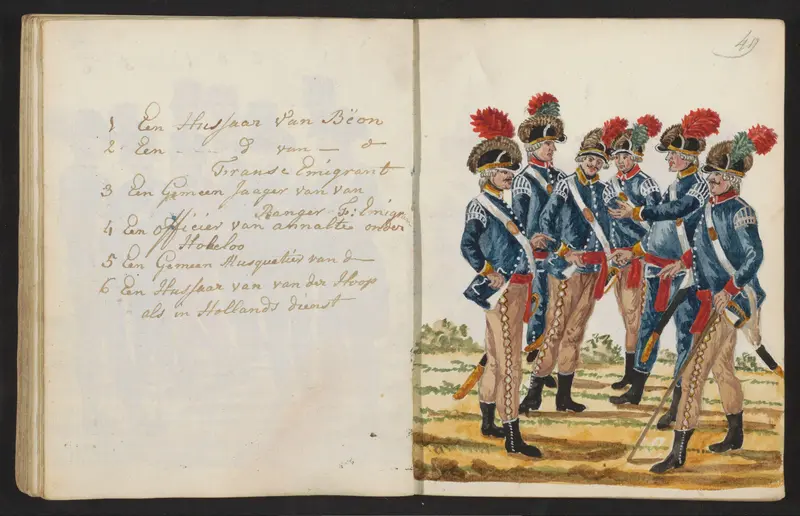 1 Een Hussaar van Bëon
2 Een - - - d van - d
Franse Emigrant
3 Een Gemeen Jaager van van
Ranger F: Emigr
4 Een officier van annalte onder
Hoheloo
5 Een Gemeen Musquetier van d
6 Een Hussaar van van der Hoop
als in Hollands dienst
49